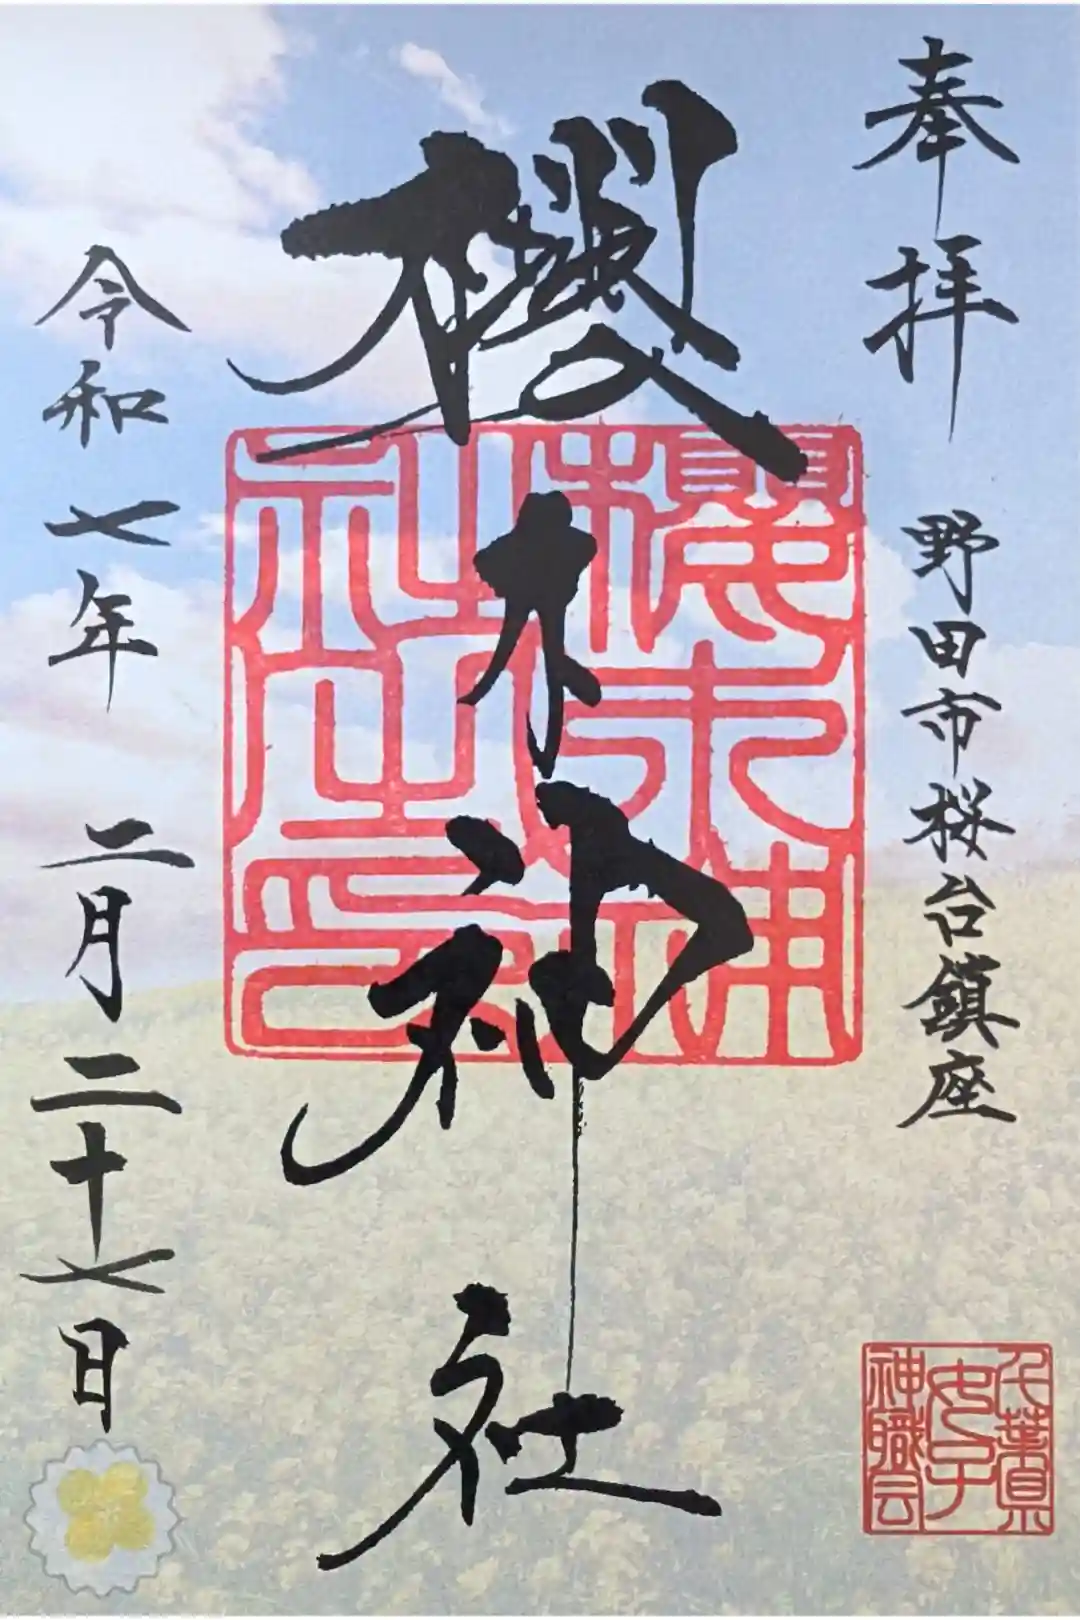 奉拝
野田市桜台鎮座
櫻木神社
櫻木神社之印
令和七年 二月二十七日
千葉県
女子
神職会